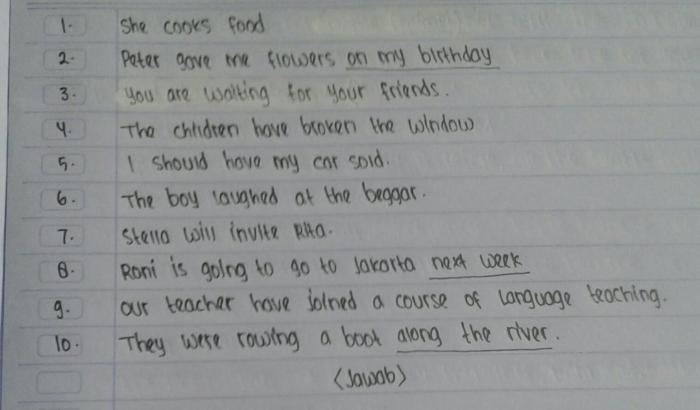 1. She cooks food
2. Peter gave me flowers on my birthday
3. You are waiting for your friends.
4. The children have broken the window
5. I should have my car sold.
6. The boy laughed at the beggar.
7. Stella will invite Rita.
8. Roni is going to go to Jakarta next week
9. Our teacher have joined a course of language teaching.
10. They were rowing a boat along the river.
(Jawab)